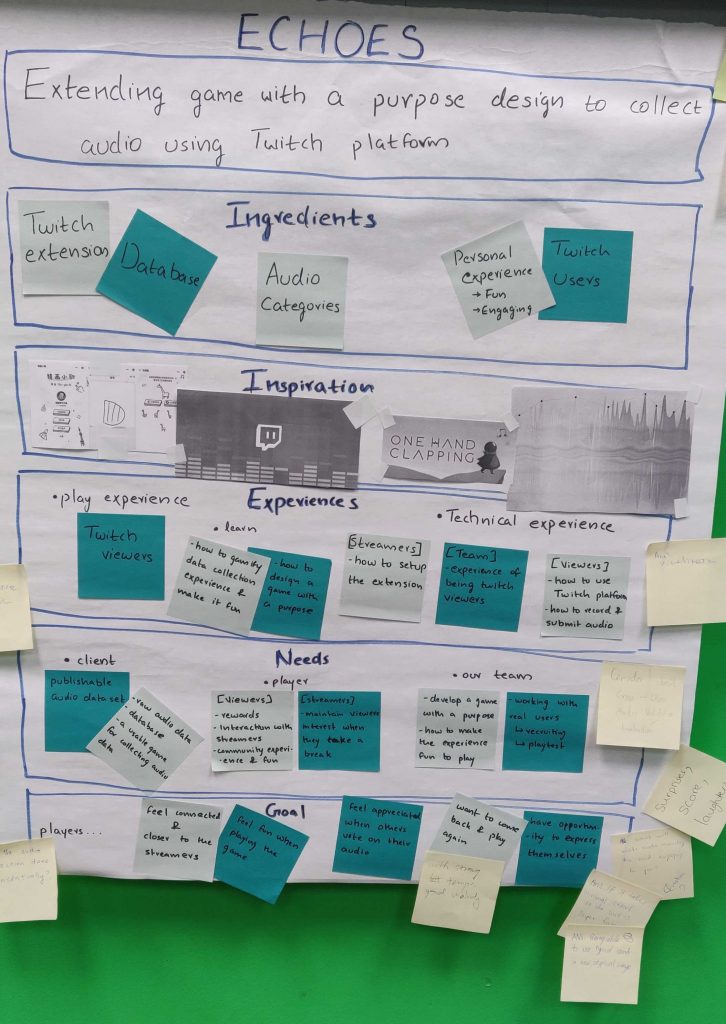 ECHOES
Extending game with a purpose design to collect
audio using Twitch platform
Ingredients
Twitch
extension
Database
Audio
Categories
Personal
experience
→ Fun
→ Engaging
Twitch
Users
Inspiration
ONE HAND
CLAPPING
Experiences
• play experience
Twitch
viewers
• learn
- how to gamify
data collection
experience &
make it fun
- how to
design a
game with
a purpose
• Technical experience
[Streamers]
- how to setup
the extension
[Team]
- experience of
being twitch
viewers
[Viewers]
- how to use
Twitch platform
- how to record &
submit audio
Needs
• client
publishable
audio dataset
- raw audio data
database
- a usable game
for collecting audio
data
• player
[Viewers]
- rewards
- Interaction with
streamers
- community experi-
ence & fun
[streamers]
- maintain viewers
interest when
they take a
break
• our team
- develop a game
with a purpose
- how to make
the experience
fun to play
- working with
real users
↳ recruiting
↳ playtest
Goal
players...
feel connected
&
closer to the
streamers
feel fun when
playing the
game
feel appreciated
when others
vote on their
audio
want to come
back & play
again
have opportun-
ity to express
themselves
Surprises,
Score,
laughter